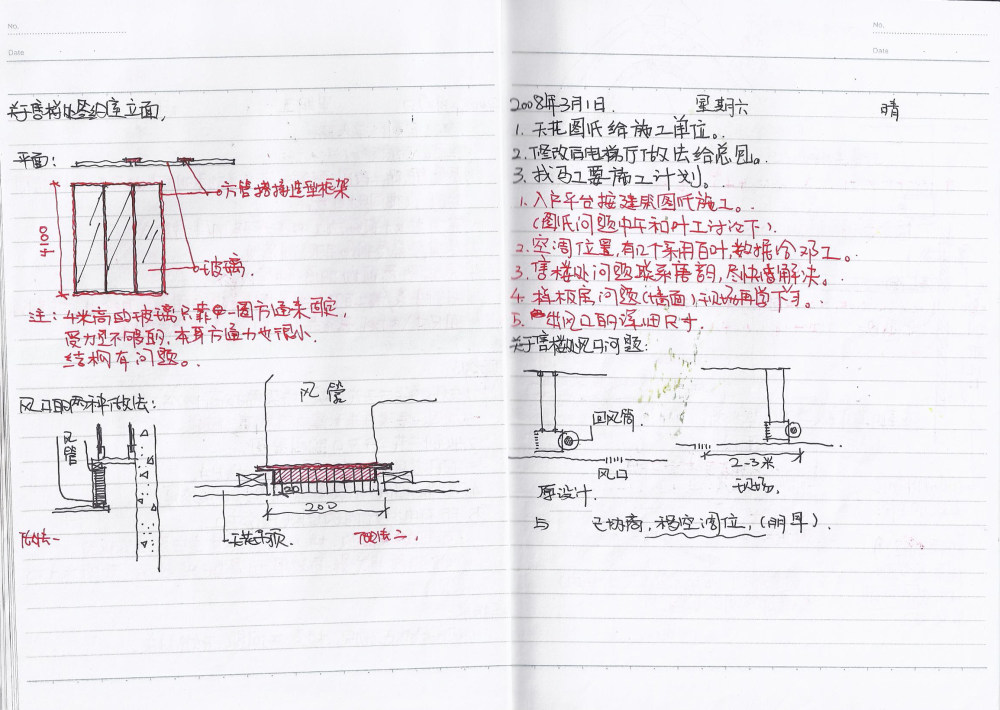 No.
Date
关于售楼处签约室立面，
平面：
方管搭接造型框架
4100
玻璃.
注：4米高的玻璃只靠一圈方通来固定，
受力是不够的，本身方通力也很小.
结构有问题。
风口的两种做法：
风管
风管
20
200
天花吊顶.
做法一
做法二，
No.
Date
2008年3月1日. 星期六 晴
1. 天花图纸给施工单位。
2. 修改后电梯厅做法给总园。
3. 找马工要施工计划。
1. 入户平台按建筑图纸施工。
(图纸问题中午和叶工讨论下).
2. 空调位置,有12个采用百叶,数据给邓工。
3. 售楼处问题联系唐韵,尽快解决。
4. 样板房问题(墙面),现场再留下。
5. 出风口的详细尺寸.
关于售楼处风口问题:
回风筒.
风口
2-3米
原设计.
现场,
与 已协商,移空调位,(明早).